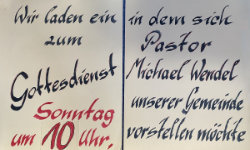 Wir laden ein
zum
Gottesdienst
Sonntag
um 10 Uhr,
in dem sich
Pastor
Michael Wendel
unserer Gemeinde
vorstellen möchte